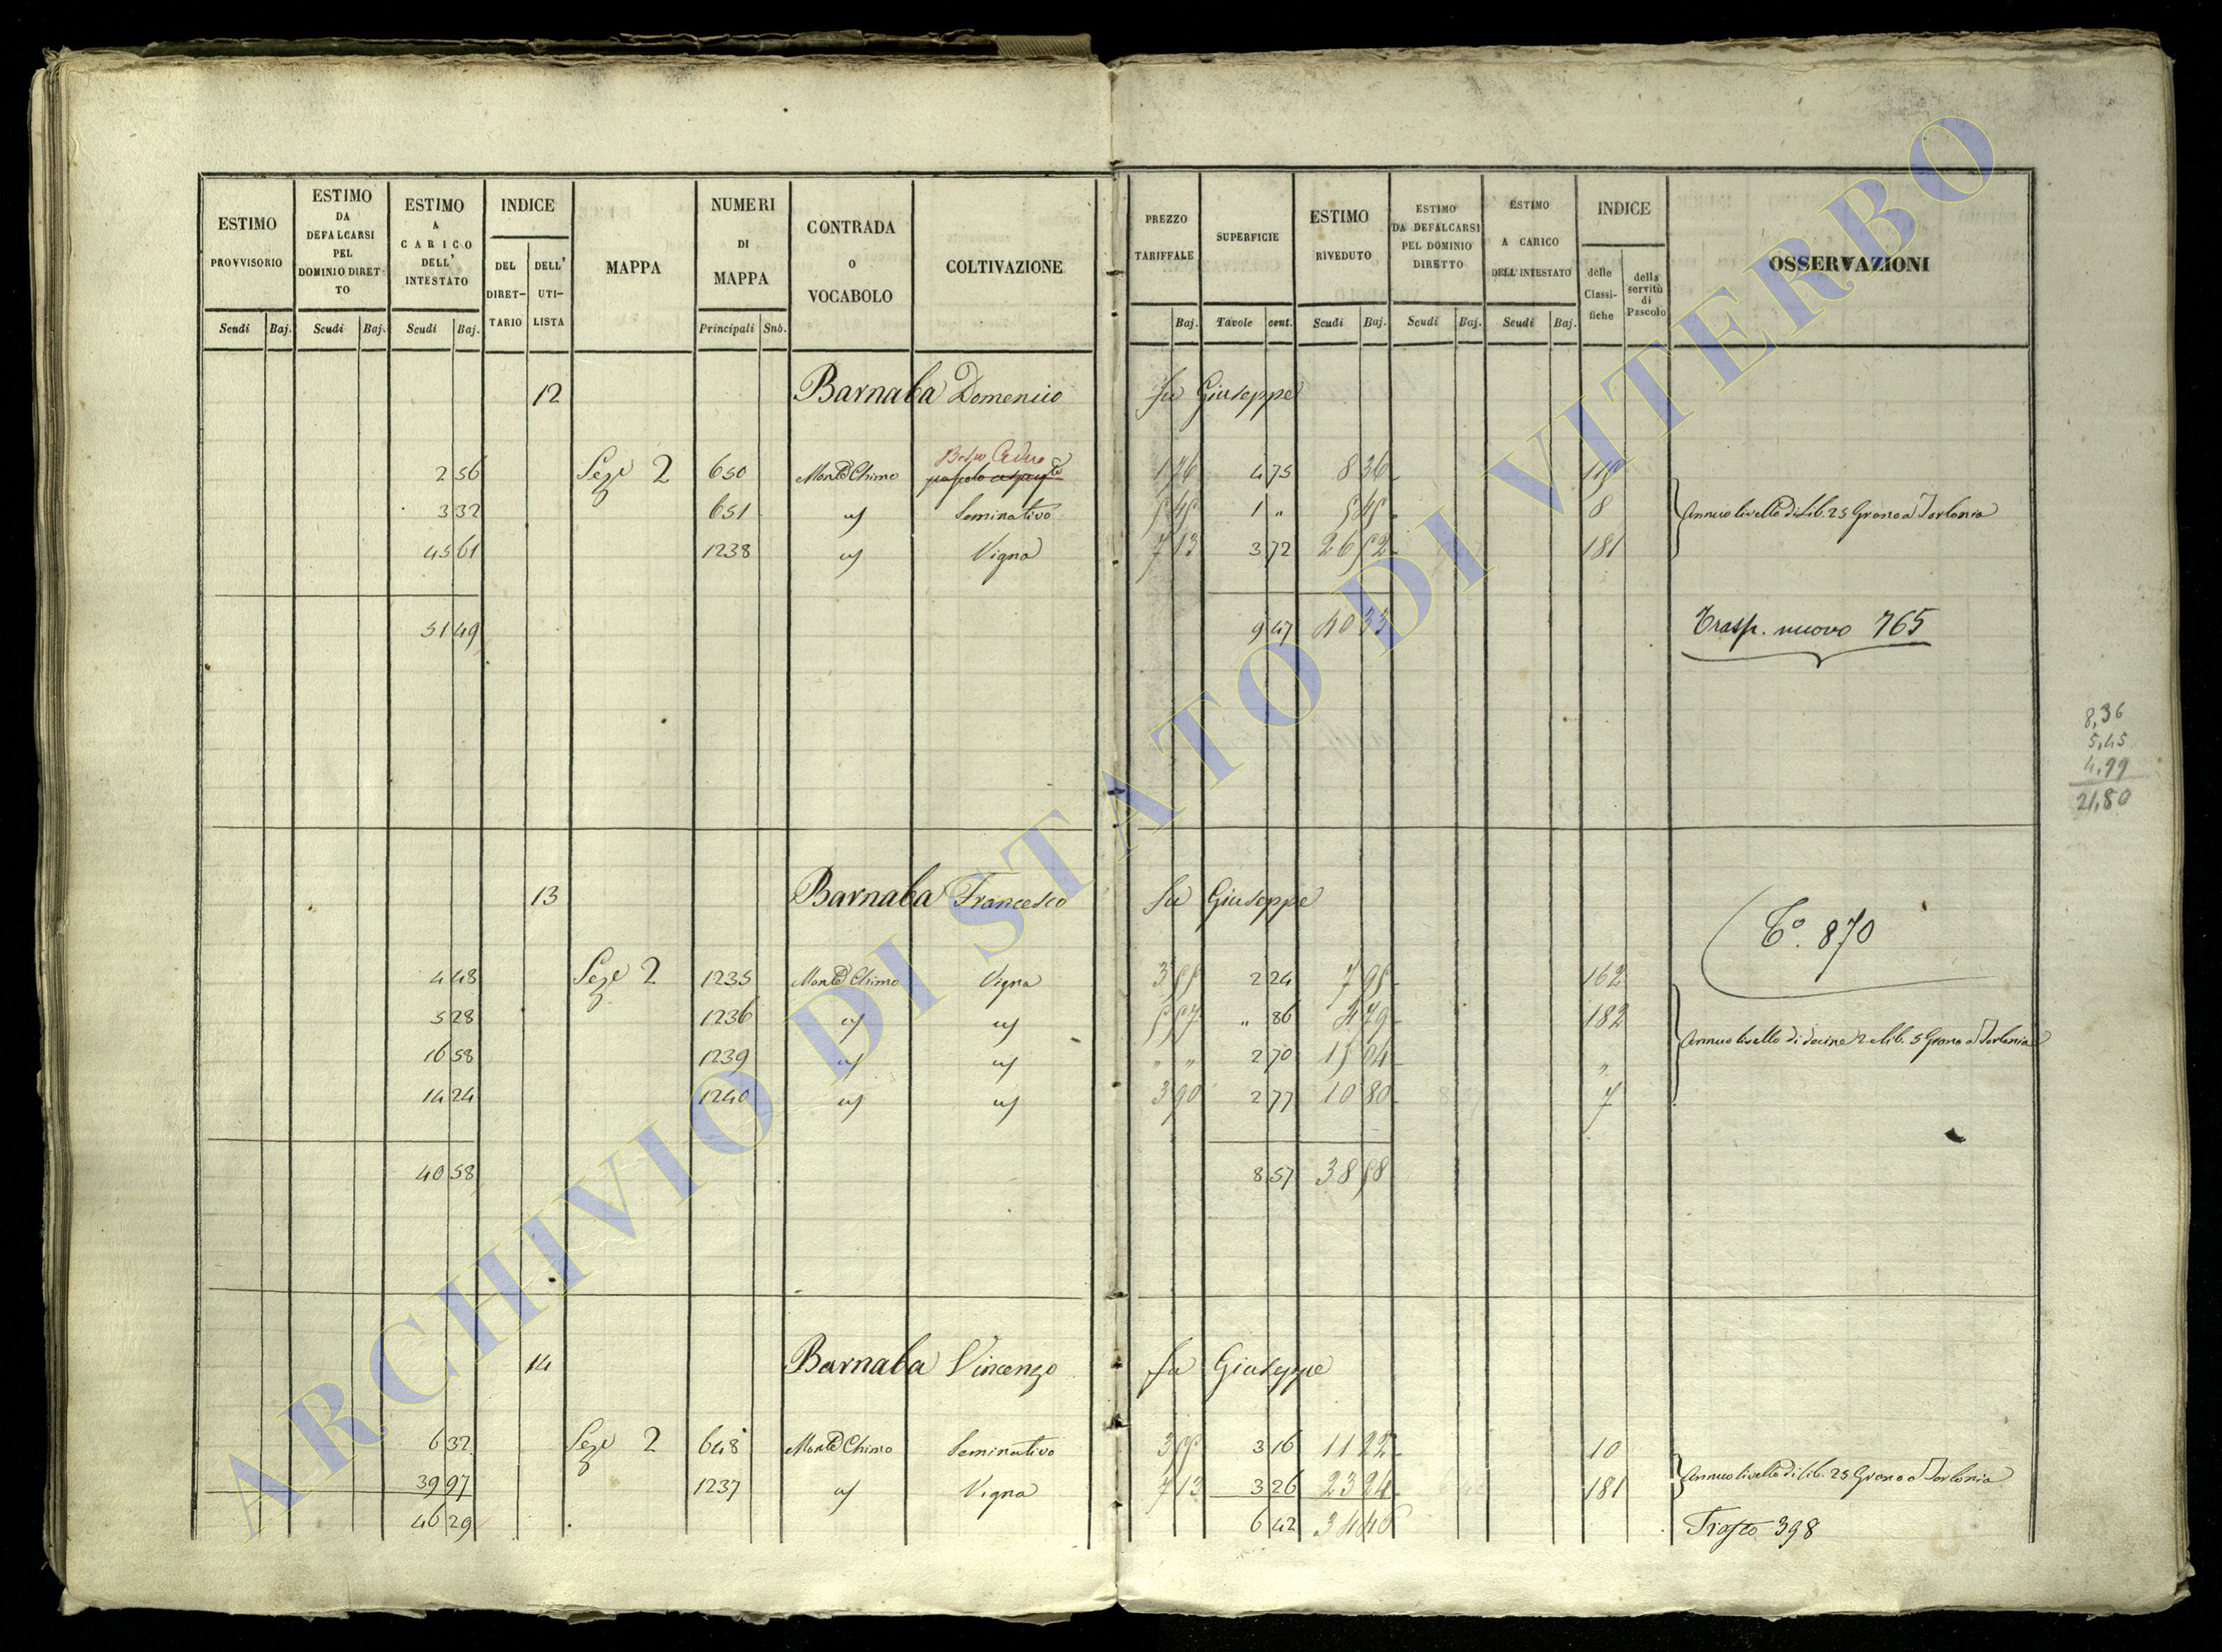 ESTIMO PROVVISORIO
ESTIMO DA DEFALCARSI PEL DOMINIO DIRETTO
ESTIMO A CARICO DELL' INTESTATO
INDICE
DEL DIRETTARIO
DELL' UTILISTA
MAPPA
NUMERI DI MAPPA
CONTRADA O VOCABOLO
COLTIVAZIONE
PREZZO TARIFFALE
SUPERFICIE
ESTIMO RIVEDUTO
ESTIMO DA DEFALCARSI PEL DOMINIO DIRETTO
ESTIMO A CARICO DELL' INTESTATO
INDICE
delle Classifiche
della servitù di Pascolo
OSSERVAZIONI
Scudi Baj. Scudi Baj. Scudi Baj. Principali Sub. Baj. Tavole cent. Scudi Baj. Scudi Baj. Scudi Baj.
12 Barnaba Domenico fu Giuseppe
Bosco Ceduo
2 56 Seze 2 650 Monte Chimo 4 75 8 36
3 32 651 " Seminativo 5 45 1 " 5 45 8 Annuo livello di Lib. 25 Grano a Torlonia
45 61 1238 " Vigna 7 13 3 72 26 52 181
51 49 9 47 40 33 Trasp. nuovo 765
8,36
5,45
4,99
21,80
13 Barnaba Francesco fu Giuseppe
Tº. 870
4 48 Seze 2 1235 Monte Chimo Vigna 3 55 2 24 7 95 162
5 28 1236 " " 5 57 " 86 4 79 182
16 58 1239 " " " " 2 70 15 04 " Annuo livello di decine 2 e lib. 5 Grano a Torlonia
14 24 1240 " " 3 90 2 77 10 80 7
40 58 8 57 38 58
14 Barnaba Vincenzo fu Giuseppe
6 32 Seze 2 648 Monte Chimo Seminativo 3 55 3 16 11 22 10
39 97 1237 " Vigna 7 13 3 26 23 24 181 Annuo livello di lib. 25 Grano a Torlonia
46 29 6 42 34 46 Trasto 398
ARCHIVIO DI STATO DI VITERBO